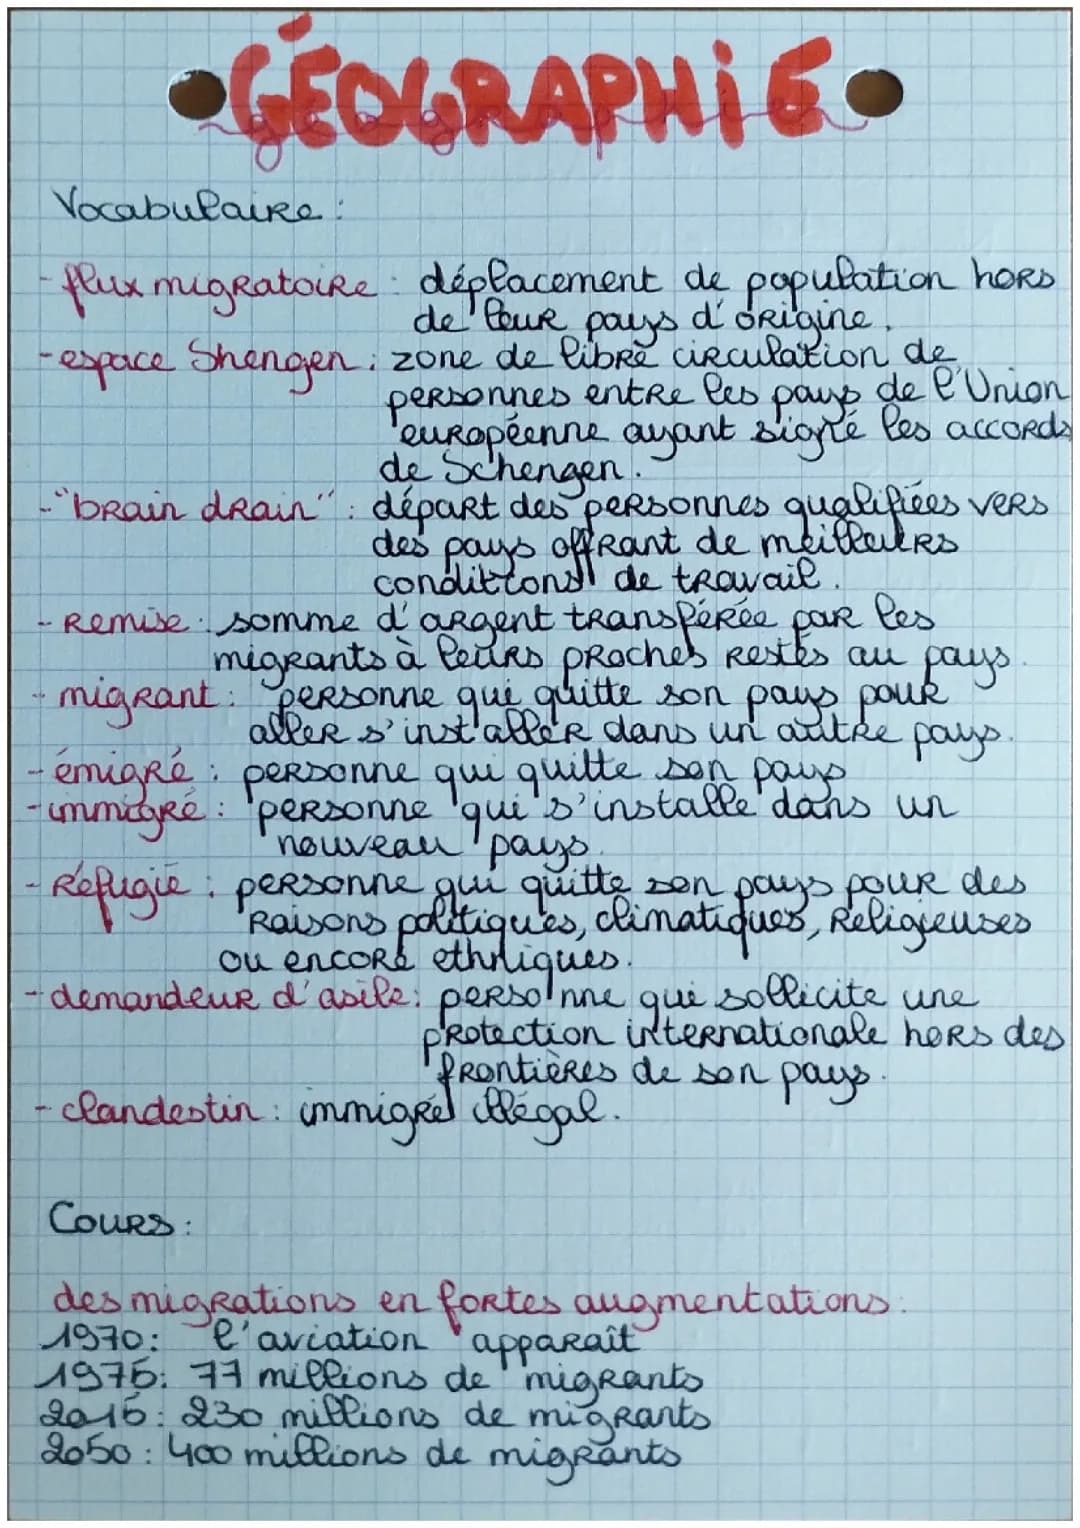 GÉOGRAPHIE
géographie
Vocabulaire :
- flux migratoire : déplacement de population hors
de leur pays d'origine.
- espace Shengen : zone de libre circulation de
personnes entre les pays de l'Union
européenne ayant signé les accords
de Schengen.
- "brain drain" : départ des personnes qualifiées vers
des pays offrant de meilleurs
conditions de travail.
- Remise : somme d'argent transférée par les
migrants à leurs proches restés au pays.
- migrant : personne qui quitte son pays pour
aller s'installer dans un autre pays.
- émigré : personne qui quitte son pays
- immigré : personne qui s'installe dans un
nouveau pays.
- Réfugié : personne qui quitte son pays pour des
raisons politiques, climatiques, religieuses
ou encore ethniques.
- demandeur d'asile : personne qui sollicite une
protection internationale hors des
frontières de son pays.
- clandestin : immigré illégal.
Cours :
des migrations en fortes augmentations :
1970 : l'aviation apparaît
1975 : 77 millions de migrants
2015 : 230 millions de migrants
2050 : 400 millions de migrants